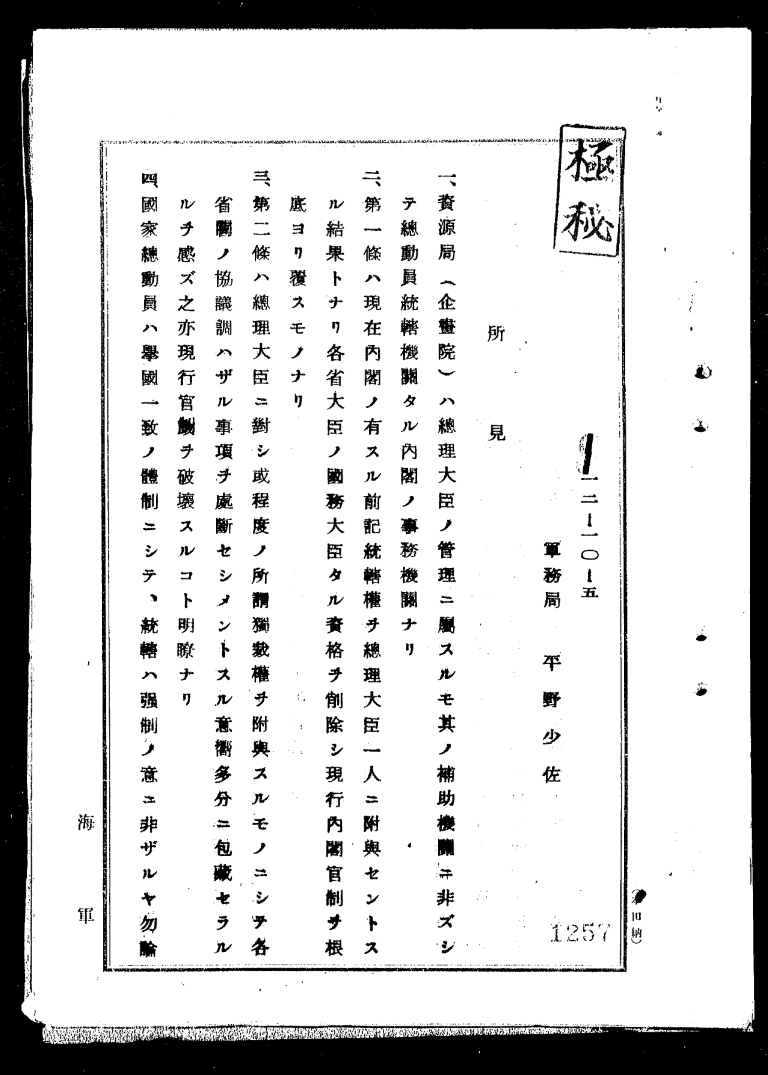 極秘
一二ー一〇ー五
軍務局 平野少佐
所見
一、資源局(企畫院)ハ總理大臣ノ管理ニ屬スルモ其ノ補助機關ニ非ズシ
テ總動員統轄機關タル内閣ノ事務機關ナリ
二、第一條ハ現在内閣ノ有スル前記統轄權ヲ總理大臣一人ニ附與セントス
ル結果トナリ各省大臣ノ國務大臣タル資格ヲ削除シ現行内閣官制ヲ根
底ヨリ覆スモノナリ
三、第二條ハ總理大臣ニ對シ或程度ノ所謂獨裁權ヲ附與スルモノニシテ各
省間ノ協議調ハザル事項ヲ處斷セシメントスル意嚮多分ニ包藏セラル
ルヲ感ズ之亦現行官制ヲ破壞スルコト明瞭ナリ
四、國家總動員ハ擧國一致ノ體制ニシテ、統轄ハ强制ノ意ニ非ザルヤ勿論
海軍
1257